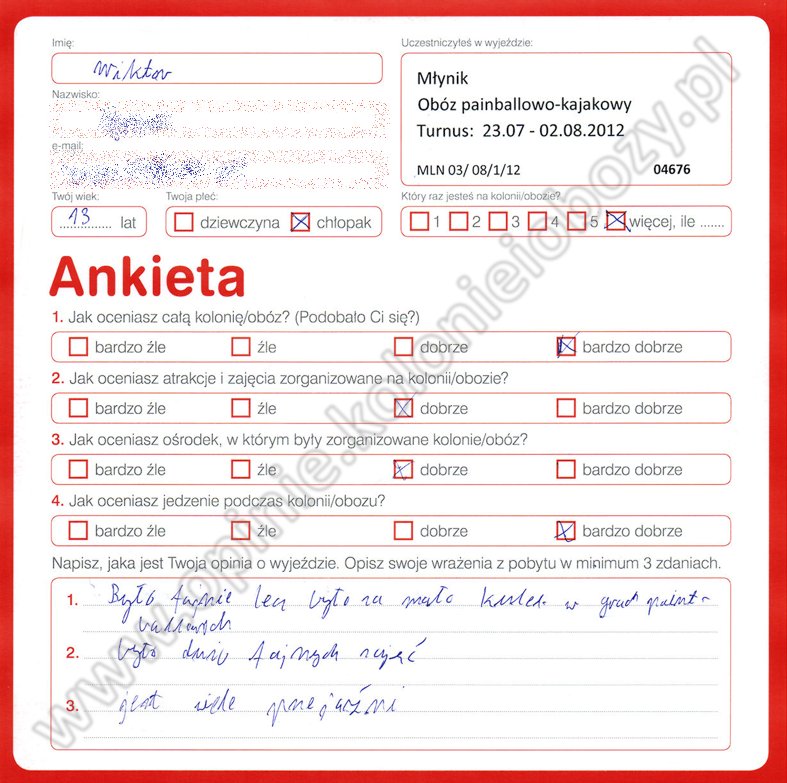 Imię:
Wiktor
Nazwisko:
e-mail:
Uczestniczyłeś w wyjeździe:
Młynik
Obóz painballowo-kajakowy
Turnus: 23.07 - 02.08.2012
MLN 03/ 08/1/12 04676
Twój wiek:
13 lat
Twoja płeć:
dziewczyna chłopak
Który raz jesteś na kolonii/obozie?
1 2 3 4 5 więcej, ile .......
Ankieta
1. Jak oceniasz całą kolonię/obóz? (Podobało Ci się?)
bardzo źle źle dobrze bardzo dobrze
2. Jak oceniasz atrakcje i zajęcia zorganizowane na kolonii/obozie?
bardzo źle źle dobrze bardzo dobrze
3. Jak oceniasz ośrodek, w którym były zorganizowane kolonie/obóz?
bardzo źle źle dobrze bardzo dobrze
4. Jak oceniasz jedzenie podczas kolonii/obozu?
bardzo źle źle dobrze bardzo dobrze
Napisz, jaka jest Twoja opinia o wyjeździe. Opisz swoje wrażenia z pobytu w minimum 3 zdaniach.
1. Było fajnie lecz było za mało kulek w grach paint-
ballowych
2. było dużo fajnych zajęć
3. jest wiele przyjaźni
www.opinie.kolonieiobozy.pl